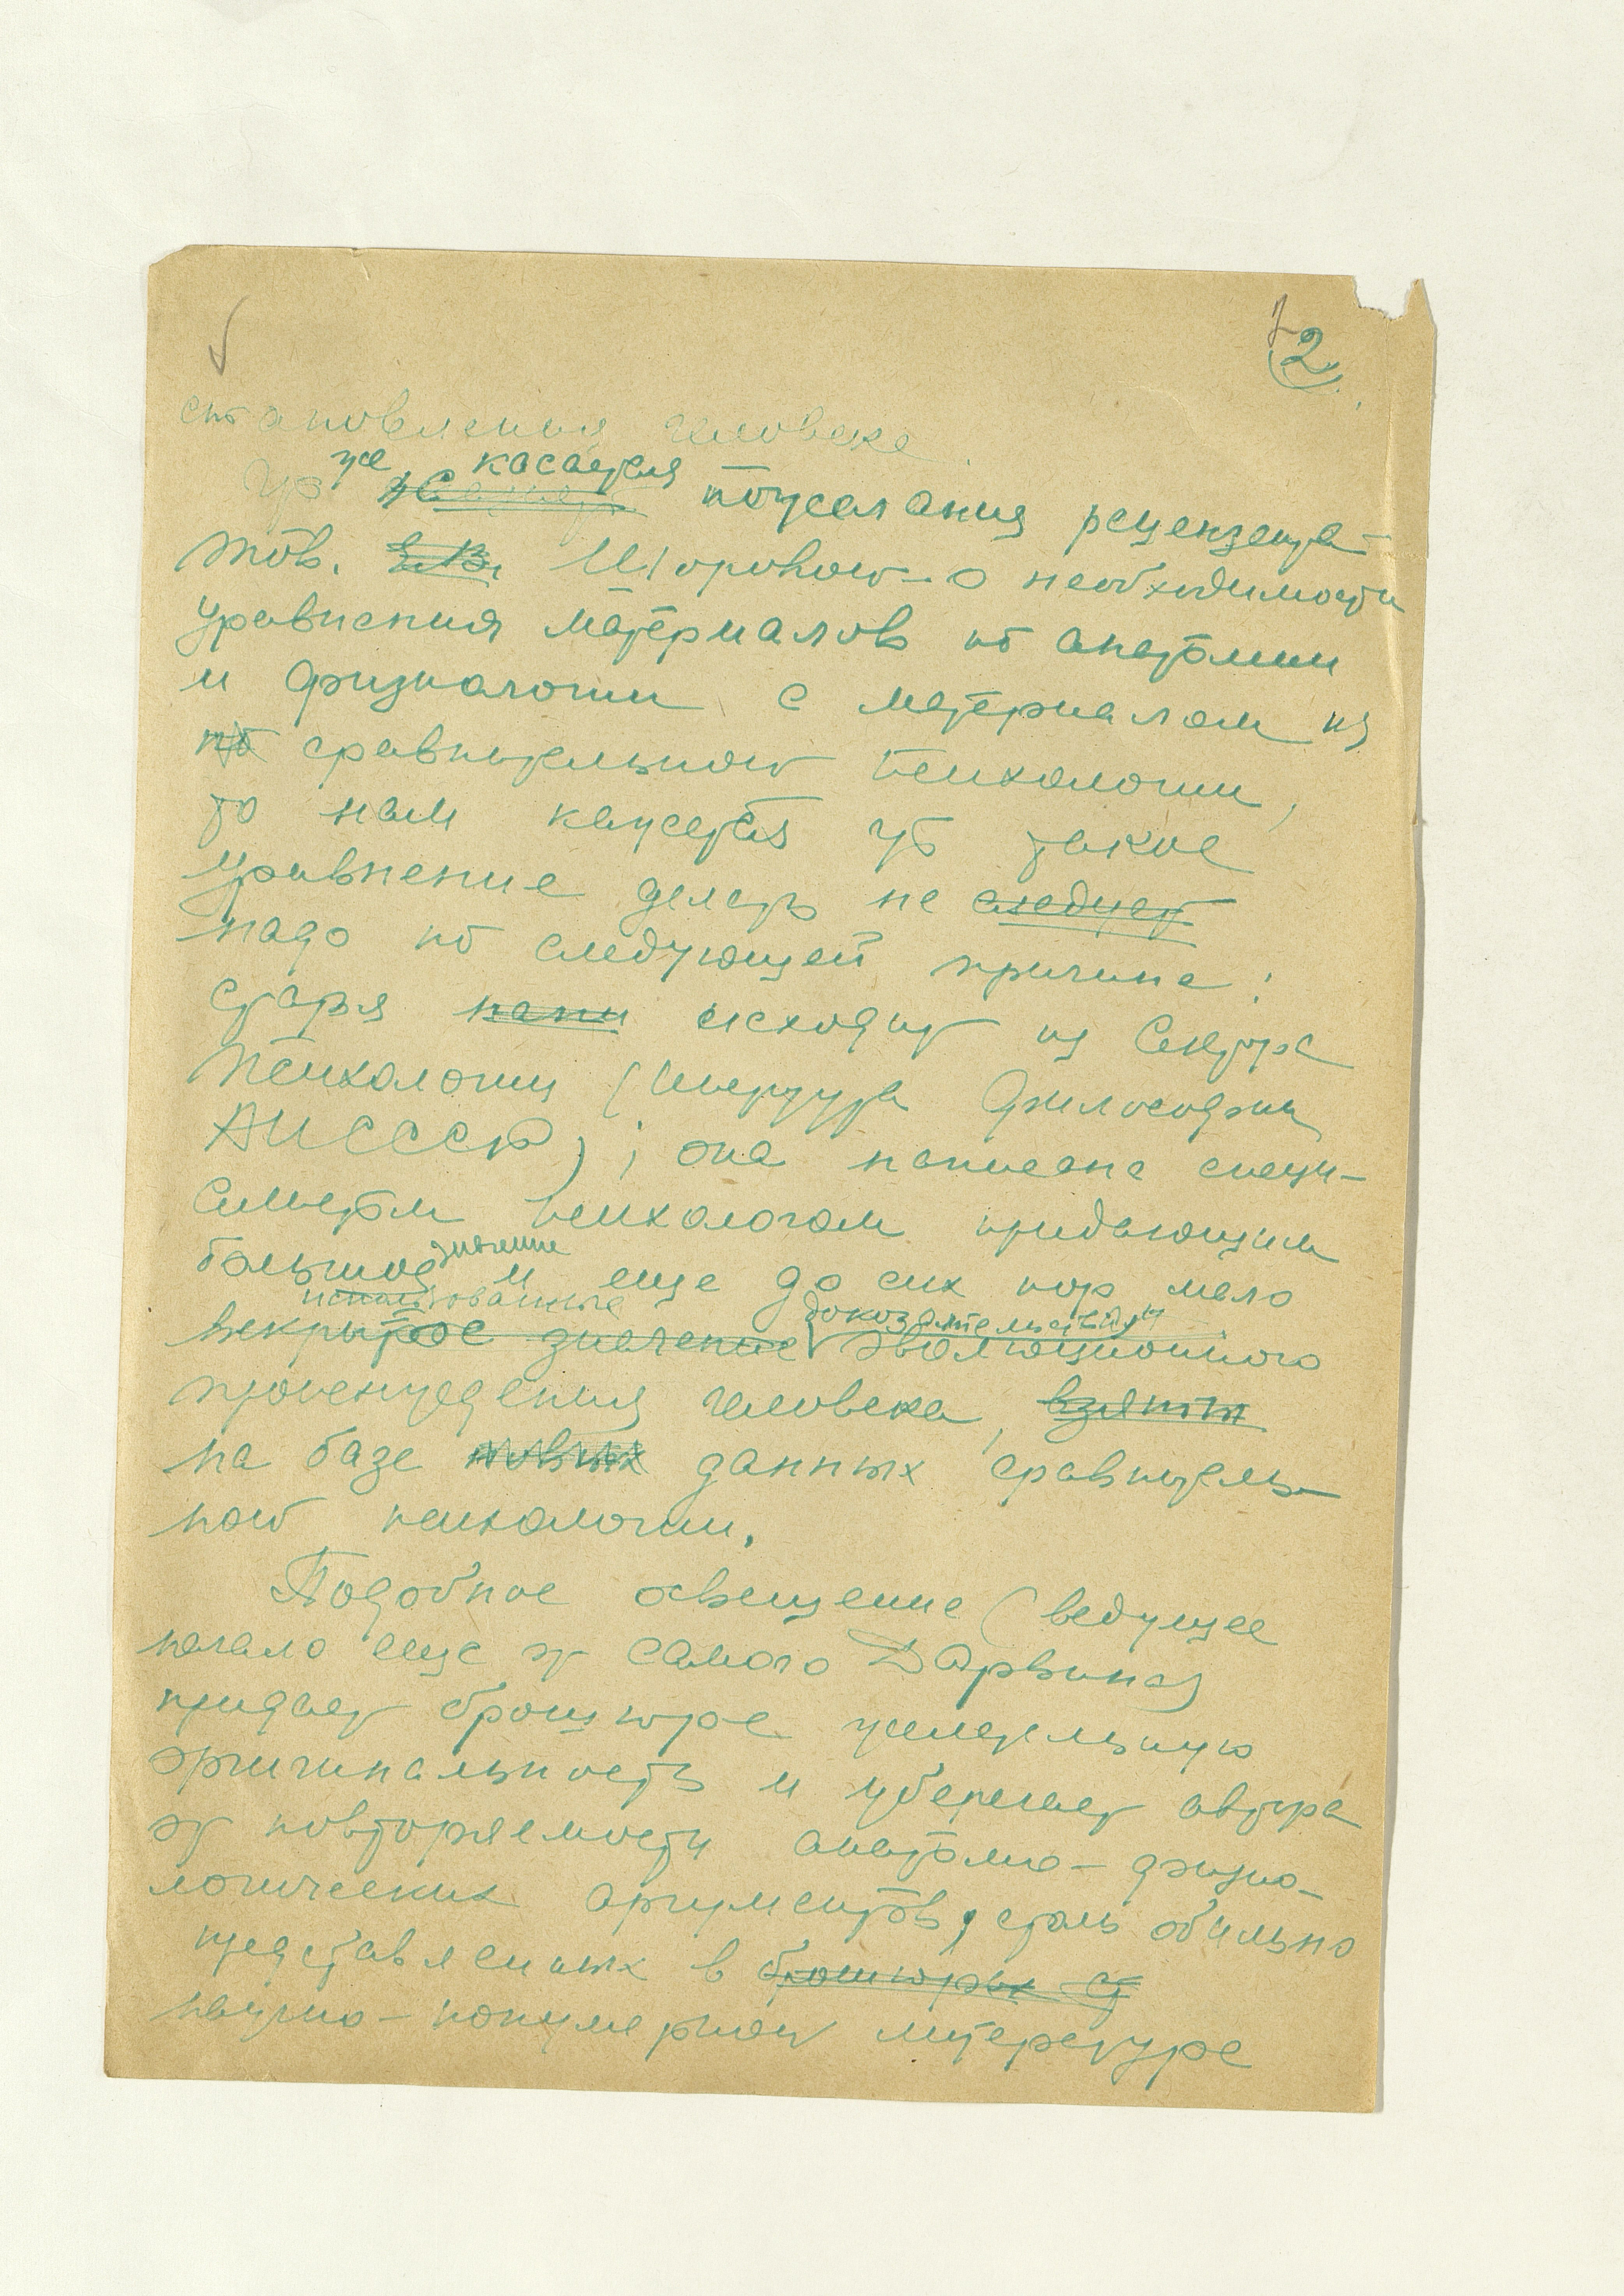 2
становления человека.
Что же касается пожелания рецензента
тов. Широковой о необходимости
уравнения материалов по анатомии
и физиологии с материалом из
сравнительной психологии,
то нам кажется что такое
уравнение делать не следует
надо по следующей причине:
статья исходит из Сектора
Психологии (Института Философии
АН СССР); она написана специ-
алистом психологом придающим
значение
большое и еще до сих пор мало
использованные
доказательствам
вскрытое значение эволюционного
происхождения человека, взятых
на базе новых данных сравнитель-
ной психологии.
Подобное освещение (ведущее
начало еще от самого Дарвина)
придает брошюре желательную
оригинальность и уберегает автора
от повторяемости анатомо-физио-
логических аргументов, столь обильно
представленных в брошюрах
научно-популярной литературе